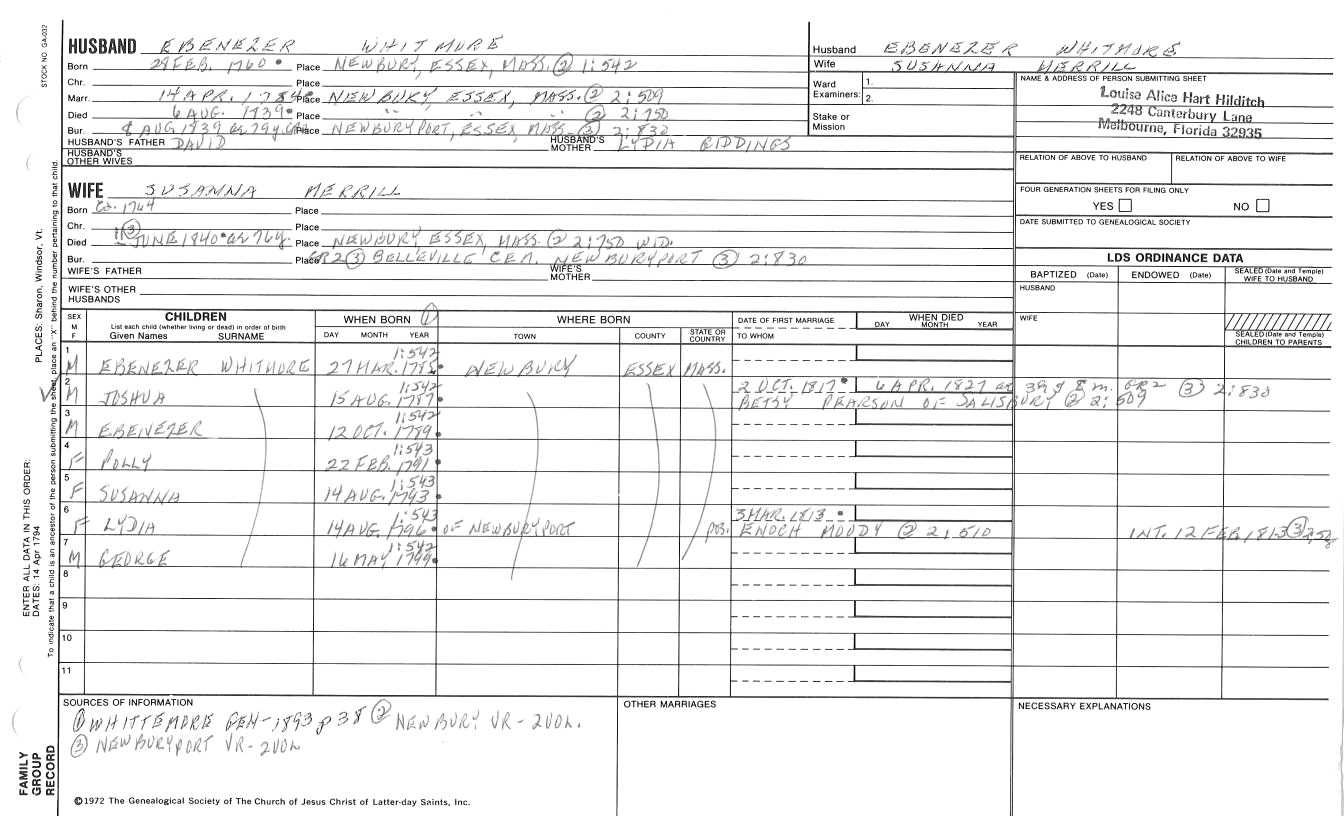 STOCK NO. GA-032
HUSBAND EBENEZER WHITMORE
Born 29 FEB. 1760 Place NEWBURY, ESSEX, MASS. ② 1:542
Chr. Place
Marr. 14 APR. 1784 Place NEWBURY, ESSEX, MASS. ② 2:509
Died 6 AUG. 1839 Place " " " ② 2:750
Bur. 8 AUG 1839 ae 79y. GR2 Place NEWBURYPORT, ESSEX, MASS ③ 2:830
HUSBAND'S FATHER DAVID HUSBAND'S MOTHER LYDIA GIDDINGS
HUSBAND'S OTHER WIVES
Husband EBENEZER WHITMORE
Wife SUSANNA MERRILL
Ward Examiners: 1.
2.
Stake or Mission
NAME & ADDRESS OF PERSON SUBMITTING SHEET
Louisa Alice Hart Hilditch
2248 Canterbury Lane
Melbourne, Florida 32935
RELATION OF ABOVE TO HUSBAND RELATION OF ABOVE TO WIFE
FOUR GENERATION SHEETS FOR FILING ONLY
YES NO
DATE SUBMITTED TO GENEALOGICAL SOCIETY
WIFE SUSANNA MERRILL
Born Ca. 1764 Place
Chr. Place
Died ③ JUNE 1840 ae 76y. Place NEWBURY ESSEX, MASS. ② 2:750 WID.
Bur. Place GR2 ③ BELLEVILLE CEM. NEWBURYPORT ③ 2:830
WIFE'S FATHER WIFE'S MOTHER
WIFE'S OTHER HUSBANDS
LDS ORDINANCE DATA
BAPTIZED (Date) ENDOWED (Date) SEALED (Date and Temple) WIFE TO HUSBAND
HUSBAND
WIFE
SEALED (Date and Temple) CHILDREN TO PARENTS
SEX M F
CHILDREN
List each child (whether living or dead) in order of birth
Given Names SURNAME
WHEN BORN ①
DAY MONTH YEAR
WHERE BORN
TOWN COUNTY STATE OR COUNTRY
DATE OF FIRST MARRIAGE
TO WHOM
WHEN DIED
DAY MONTH YEAR
1 M EBENEZER WHITMORE 27 MAR. 1785 1:542 NEWBURY ESSEX MASS.
2 M JOSHUA 15 AUG. 1787 1:542 2 OCT. 1817 6 APR. 1827 ae 39y 8 m. GR2 ③ 2:830
BETSY PEARSON OF SALISBURY ② 2:509
3 M EBENEZER 12 OCT. 1789 1:542
4 F POLLY 22 FEB. 1791 1:543
5 F SUSANNA 14 AUG. 1793 1:543
6 F LYDIA 14 AUG. 1796 1:543 OF NEWBURYPORT 3 MAR. 1813
pos. ENOCH MOODY ② 2:510 INT. 12 FEB. 1813 ③
7 M GEORGE 16 MAY 1799 1:542
8
9
10
11
SOURCES OF INFORMATION
① WHITTEMORE GEN-1893 p 38 ② NEWBURY VR-2VOL.
③ NEWBURYPORT VR-2VOL
OTHER MARRIAGES
NECESSARY EXPLANATIONS
©1972 The Genealogical Society of The Church of Jesus Christ of Latter-day Saints, Inc.
FAMILY GROUP RECORD
ENTER ALL DATA IN THIS ORDER:
DATES: 14 Apr 1794
PLACES: Sharon, Windsor, Vt.
To indicate that a child is an ancestor of the person submitting the sheet, place an "X" behind the number pertaining to that child.